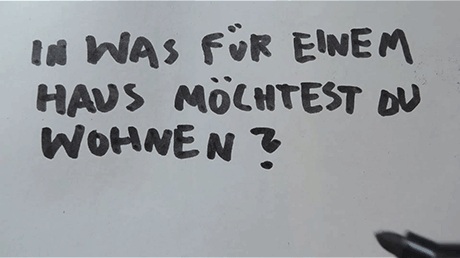 IN WAS FÜR EINEM
HAUS MÖCHTEST DU
WOHNEN?